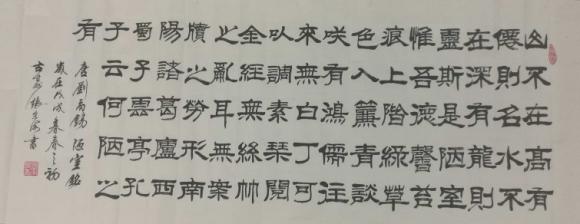 山不在高有
僊則名水不
在深有龍則
靈斯是陋室
惟吾德馨苔
痕上階綠草
色入簾青談
咲有鴻儒往
來無白丁可
㠯調素琴閱
金經無絲竹
之亂耳無案
牘之勞形南
陽諸葛廬西
蜀子雲亭孔
子云何陋之
有
唐劉禹錫陋室銘
歲在戊戌春之初
古楊書